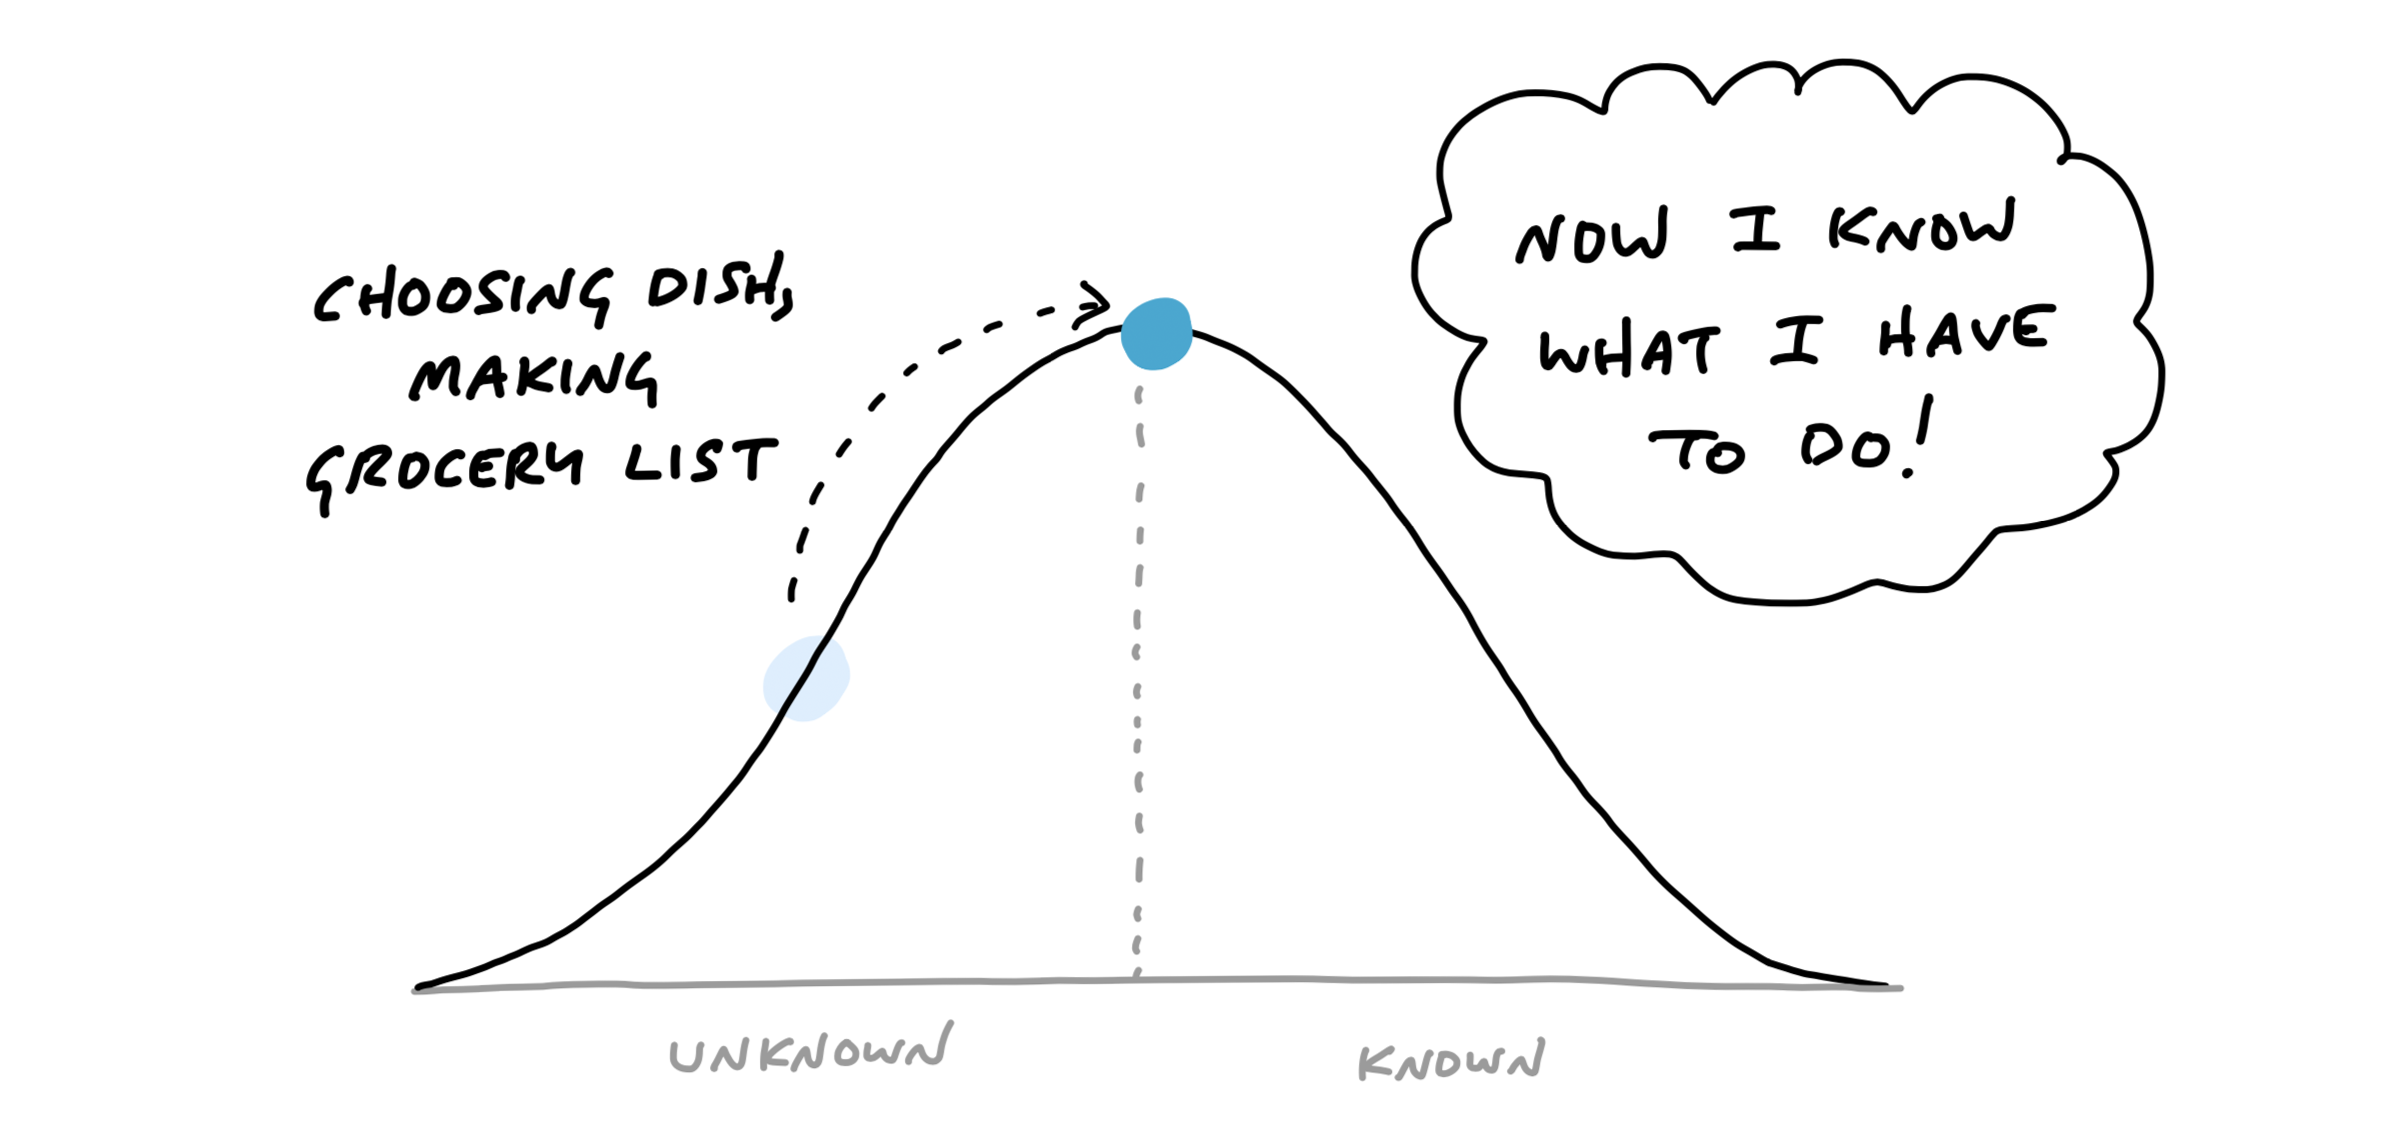 CHOOSING DISH,
MAKING
GROCERY LIST
NOW I KNOW
WHAT I HAVE
TO DO!
UNKNOWN
KNOWN